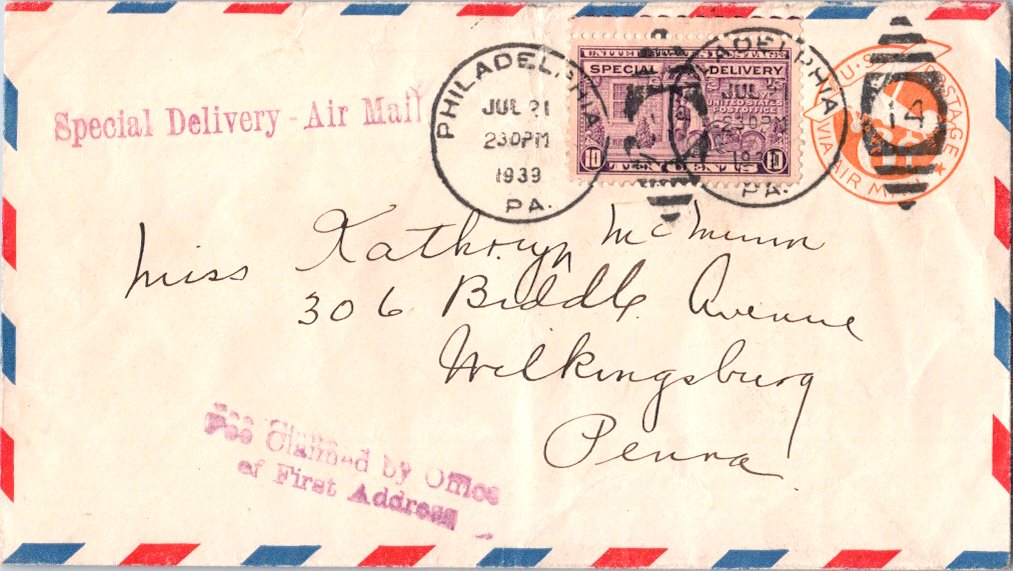 Special Delivery - Air Mail
PHILADELPHIA
JUL 21
230PM
1939
PA.
UNITED STATES
SPECIAL DELIVERY
UNITED STATES
POST OFFICE
10 TEN CENTS 10
PHILADELPHIA
JUL
230PM
PA.
14
U.S. POSTAGE
VIA AIR MAIL
Miss Kathryn McMunn
306 Biddle Avenue
Wilkingsburg
Penna
Fee Claimed by Office
of First Address